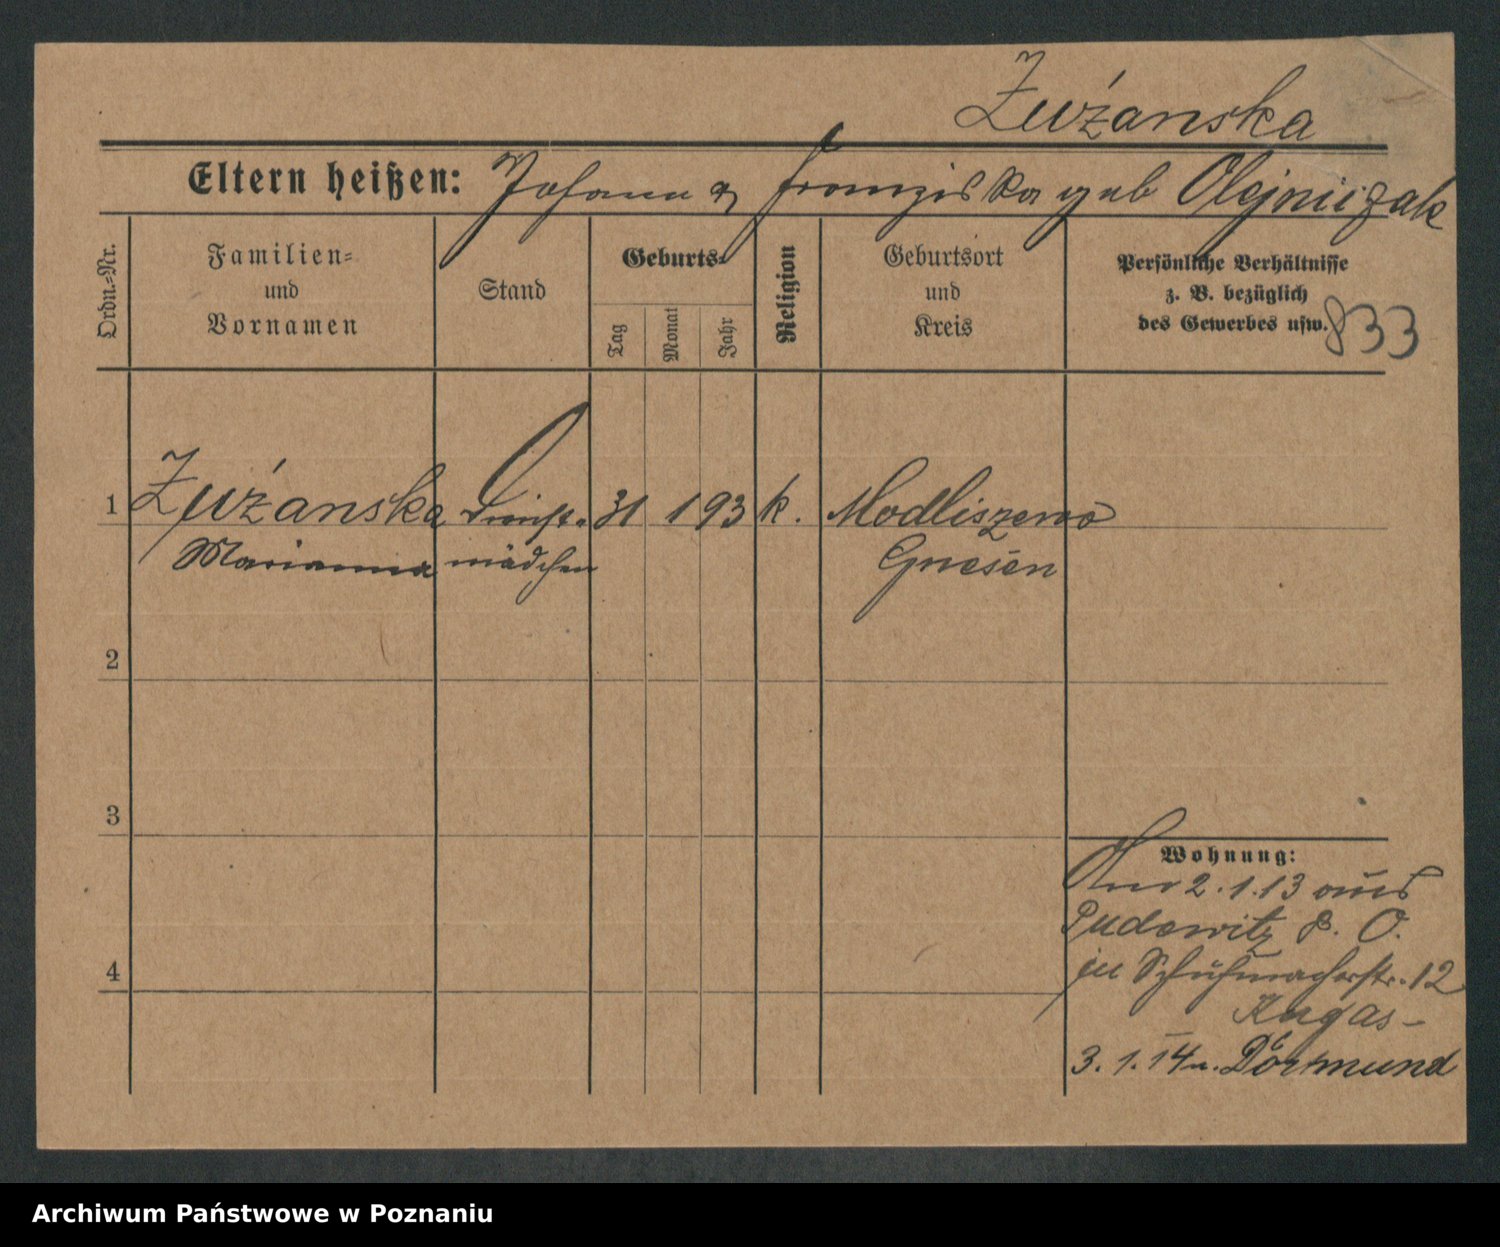 Zuźanska
Eltern heißen: Johann & Franziska geb Olejniczak
Ordn.-Nr.
Familien-
und
Vornamen
Stand
Geburts-
Tag
Monat
Jahr
Religion
Geburtsort
und
Kreis
Persönliche Verhältnisse
z. B. bezüglich
des Gewerbes usw.
833
1 Zuźanska Dienst- 31 1 93 k. Modliszewo
Marianna mädchen Gnesen
2
3
Wohnung:
2.1.13 aus
Pudewitz P. O.
4
in Schuhmacherstr. 12
3.1.14 n. Dortmund
Archiwum Państwowe w Poznaniu